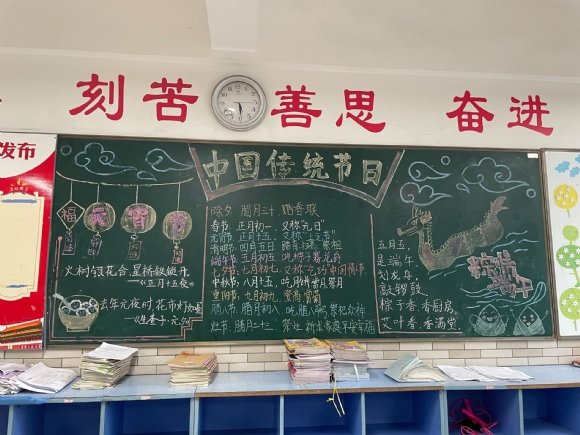 刻苦 善思 奋进
发布
中国传统节日
福 元 宵 节
火树银花合,星桥铁锁开。
《正月十五夜》
去年元夜时,花市灯如昼
《生查子·元夕》
除夕 腊月三十 贴春联
春节 正月初一,又称"元日"
元宵节 正月十五,又称"上元节"
清明节 四月五日 踏青扫墓 祭祖
端午节 五月初五 吃粽子赛龙舟
七夕节 七月初七 又称乞巧 中国情节
中秋节 八月十五 吃月饼赏月
重阳节 九月初九 登高赏菊
腊八节 腊月初八 吃腊八粥 祭祀众神
灶节 腊月二十三 祭灶
五月五,
是端午,
划龙舟,
敲锣鼓
粽子香,香厨房,
艾叶香,香满堂。
端午